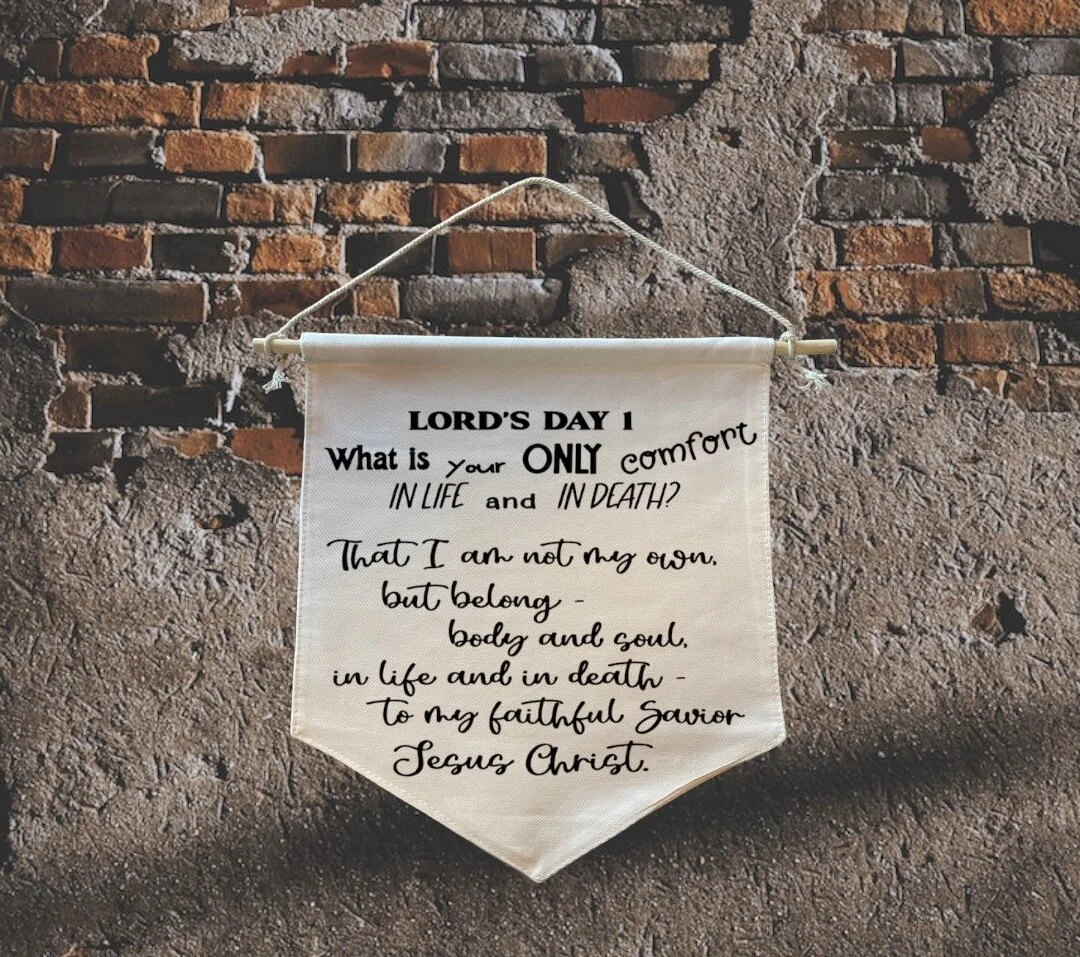 LORD'S DAY 1
What is your ONLY comfort
IN LIFE and IN DEATH?
That I am not my own,
but belong -
body and soul,
in life and in death -
to my faithful Savior
Jesus Christ.